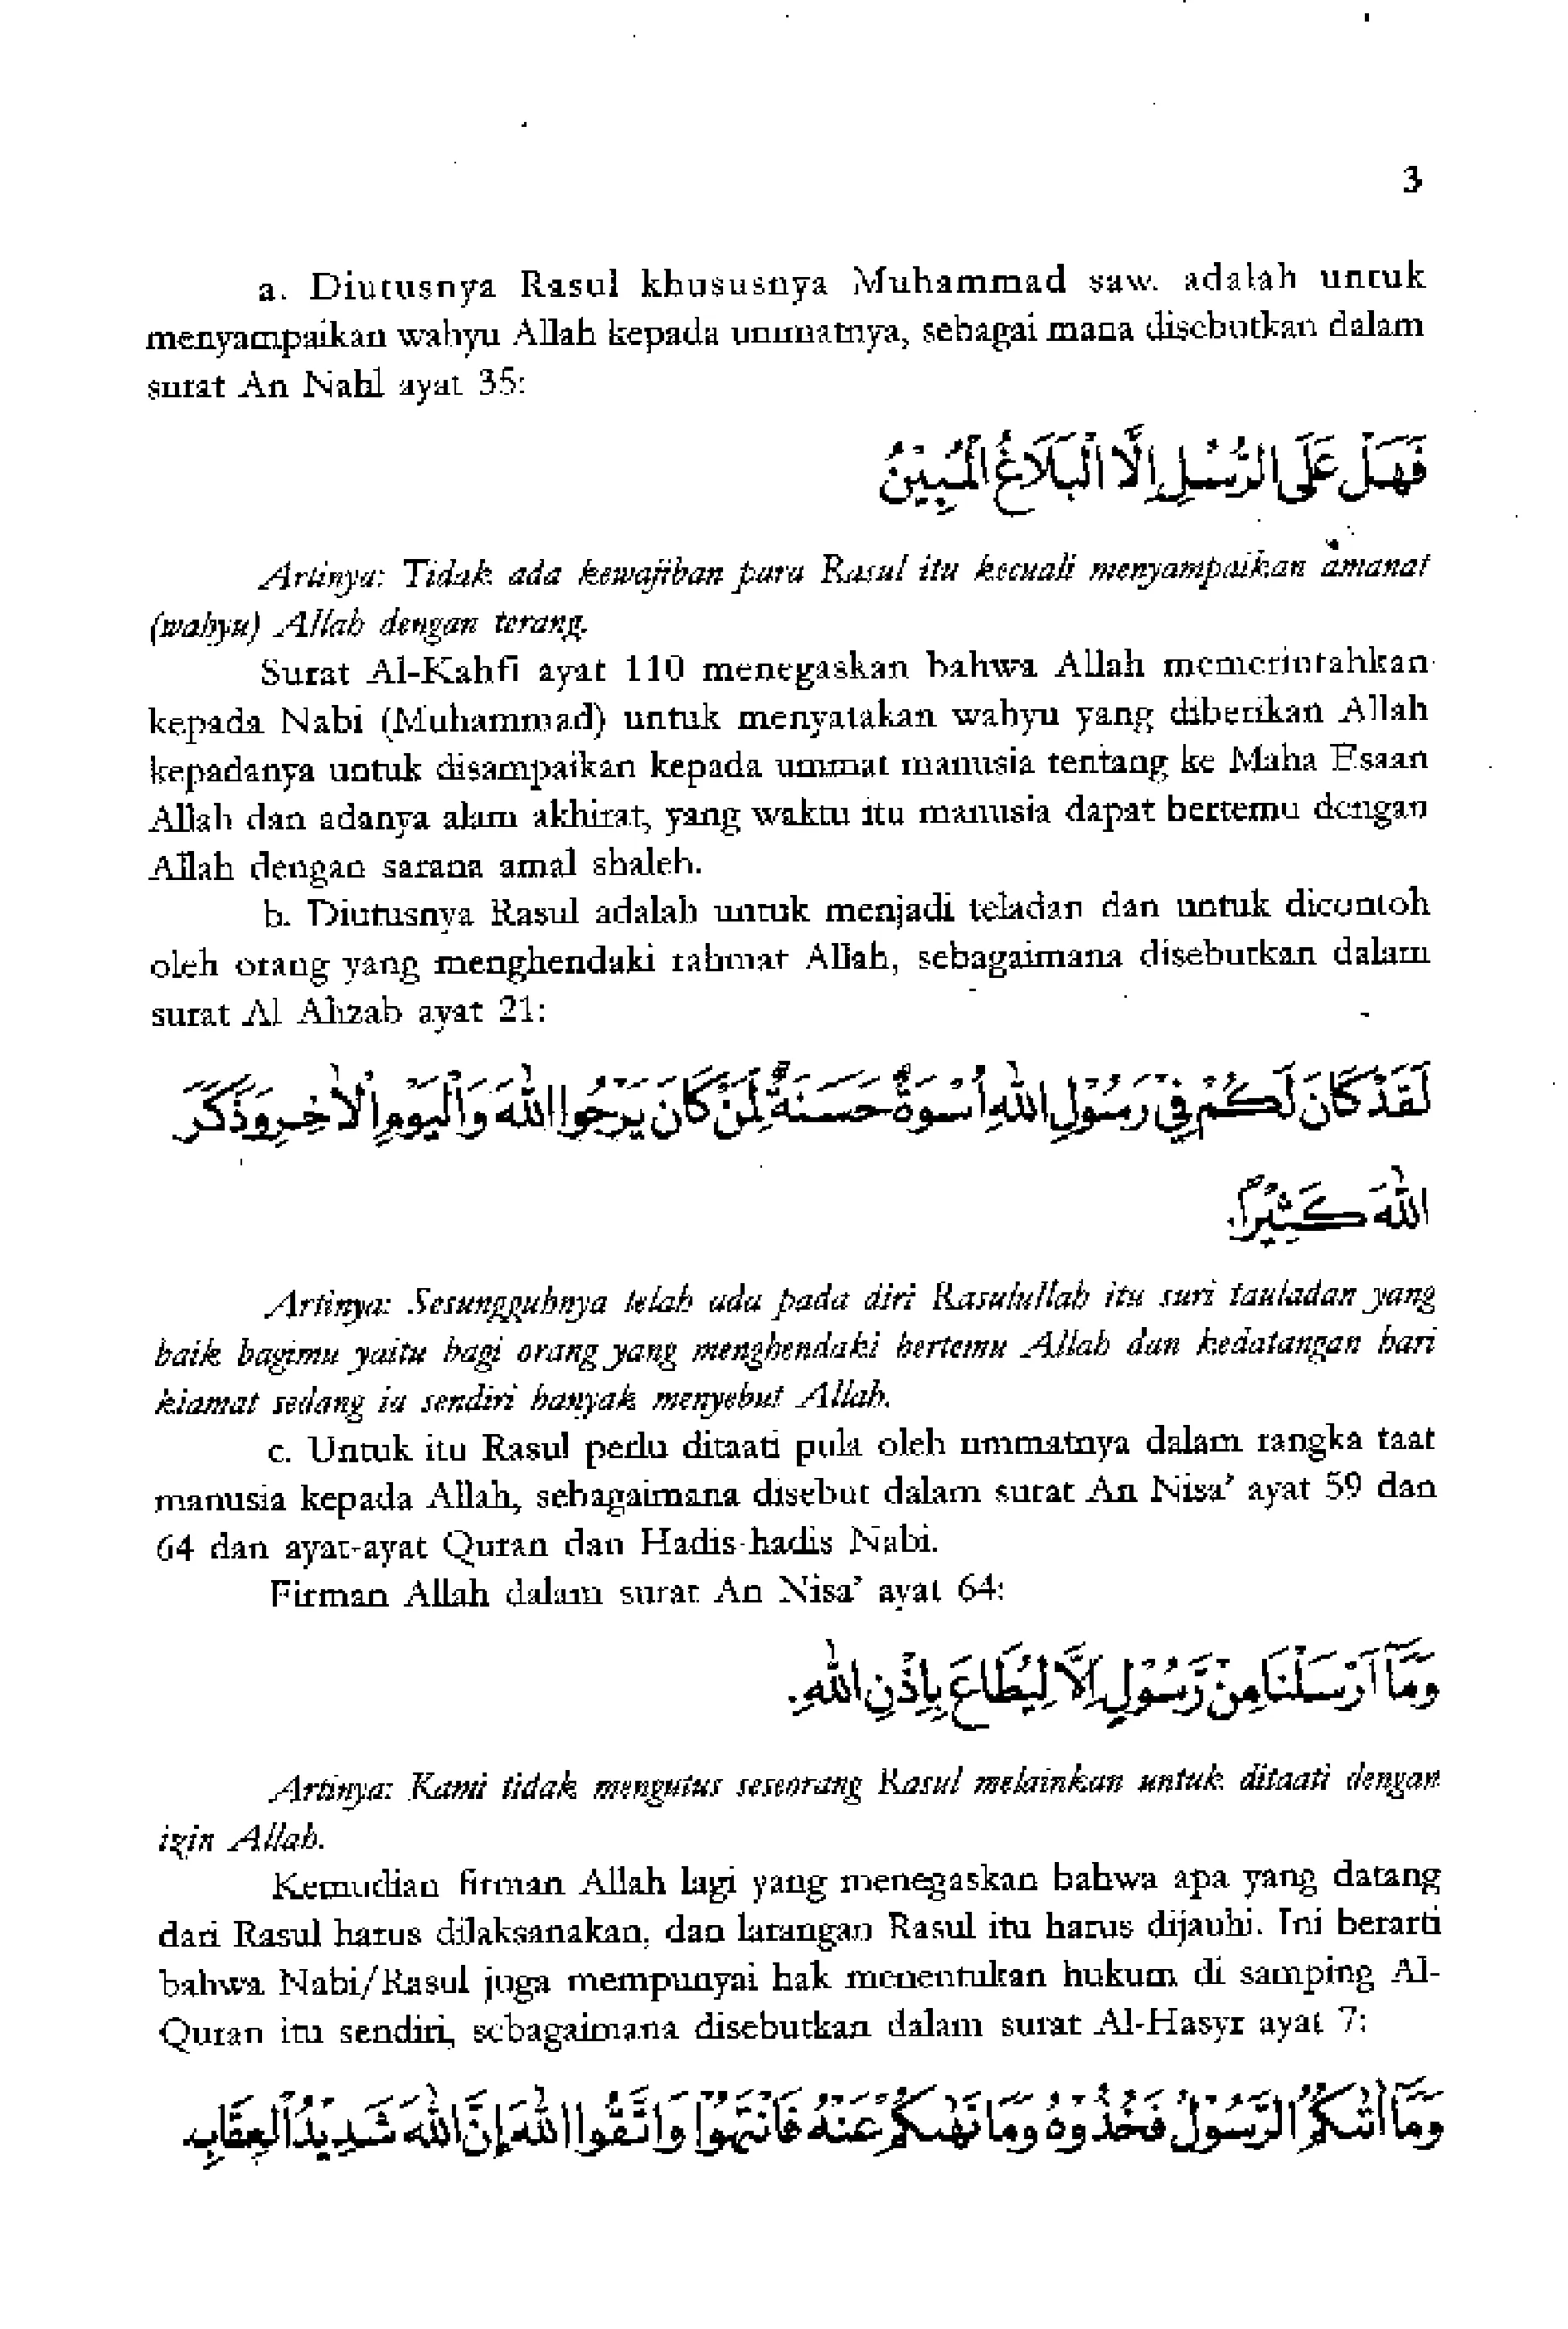 3
a. Diutusnya Rasul khususnya Muhammad saw. adalah untuk
menyampaikan wahyu Allah kepada ummatnya, sebagai mana disebutkan dalam
surat An Nahl ayat 35:
فَهَلْ عَلَى الرُّسُلِ اِلَّا الْبَلَاغُ الْمُبِيْنُ
Artinya: Tidak ada kewajiban para Rasul itu kecuali menyampaikan amanat
(wahyu) Allah dengan terang.
Surat Al-Kahfi ayat 110 menegaskan bahwa Allah memerintahkan
kepada Nabi (Muhammad) untuk menyatakan wahyu yang diberikan Allah
kepadanya untuk disampaikan kepada ummat manusia tentang ke Maha Esaan
Allah dan adanya alam akhirat, yang waktu itu manusia dapat bertemu dengan
Allah dengan sarana amal shaleh.
b. Diutusnya Rasul adalah untuk menjadi teladan dan untuk dicontoh
oleh orang yang menghendaki rahmat Allah, sebagaimana disebutkan dalam
surat Al Ahzab ayat 21:
لَقَدْ كَانَ لَكُمْ فِيْ رَسُوْلِ اللّٰهِ اُسْوَةٌ حَسَنَةٌ لِّمَنْ كَانَ يَرْجُوا اللّٰهَ وَالْيَوْمِ اْلاٰخِرِ وَذَكَرَ
اللّٰهَ كَثِيْرًا.
Artinya: Sesungguhnya telah ada pada diri Rasulullah itu suri tauladan yang
baik bagimu yaitu bagi orang yang menghendaki bertemu Allah dan kedatangan hari
kiamat sedang ia sendiri banyak menyebut Allah.
c. Untuk itu Rasul perlu ditaati pula oleh ummatnya dalam rangka taat
manusia kepada Allah, sebagaimana disebut dalam surat An Nisa' ayat 59 dan
64 dan ayat-ayat Quran dan Hadis-hadis Nabi.
Firman Allah dalam surat An Nisa' ayat 64:
وَمَآ اَرْسَلْنَا مِنْ رَّسُوْلٍ اِلَّا لِيُطَاعَ بِاِذْنِ اللّٰهِ.
Artinya: Kami tidak mengutus seseorang Rasul melainkan untuk ditaati dengan
izin Allah.
Kemudian firman Allah lagi yang menegaskan bahwa apa yang datang
dari Rasul harus dilaksanakan, dan larangan Rasul itu harus dijauhi. Ini berarti
bahwa Nabi/Rasul juga mempunyai hak menentukan hukum di samping Al-
Quran itu sendiri, sebagaimana disebutkan dalam surat Al-Hasyr ayat 7:
وَمَآ اٰتٰىكُمُ الرَّسُوْلُ فَخُذُوْهُ وَمَا نَهٰىكُمْ عَنْهُ فَانْتَهُوْا وَاتَّقُوا اللّٰهَ اِنَّ اللّٰهَ شَدِيْدُ الْعِقَابِ